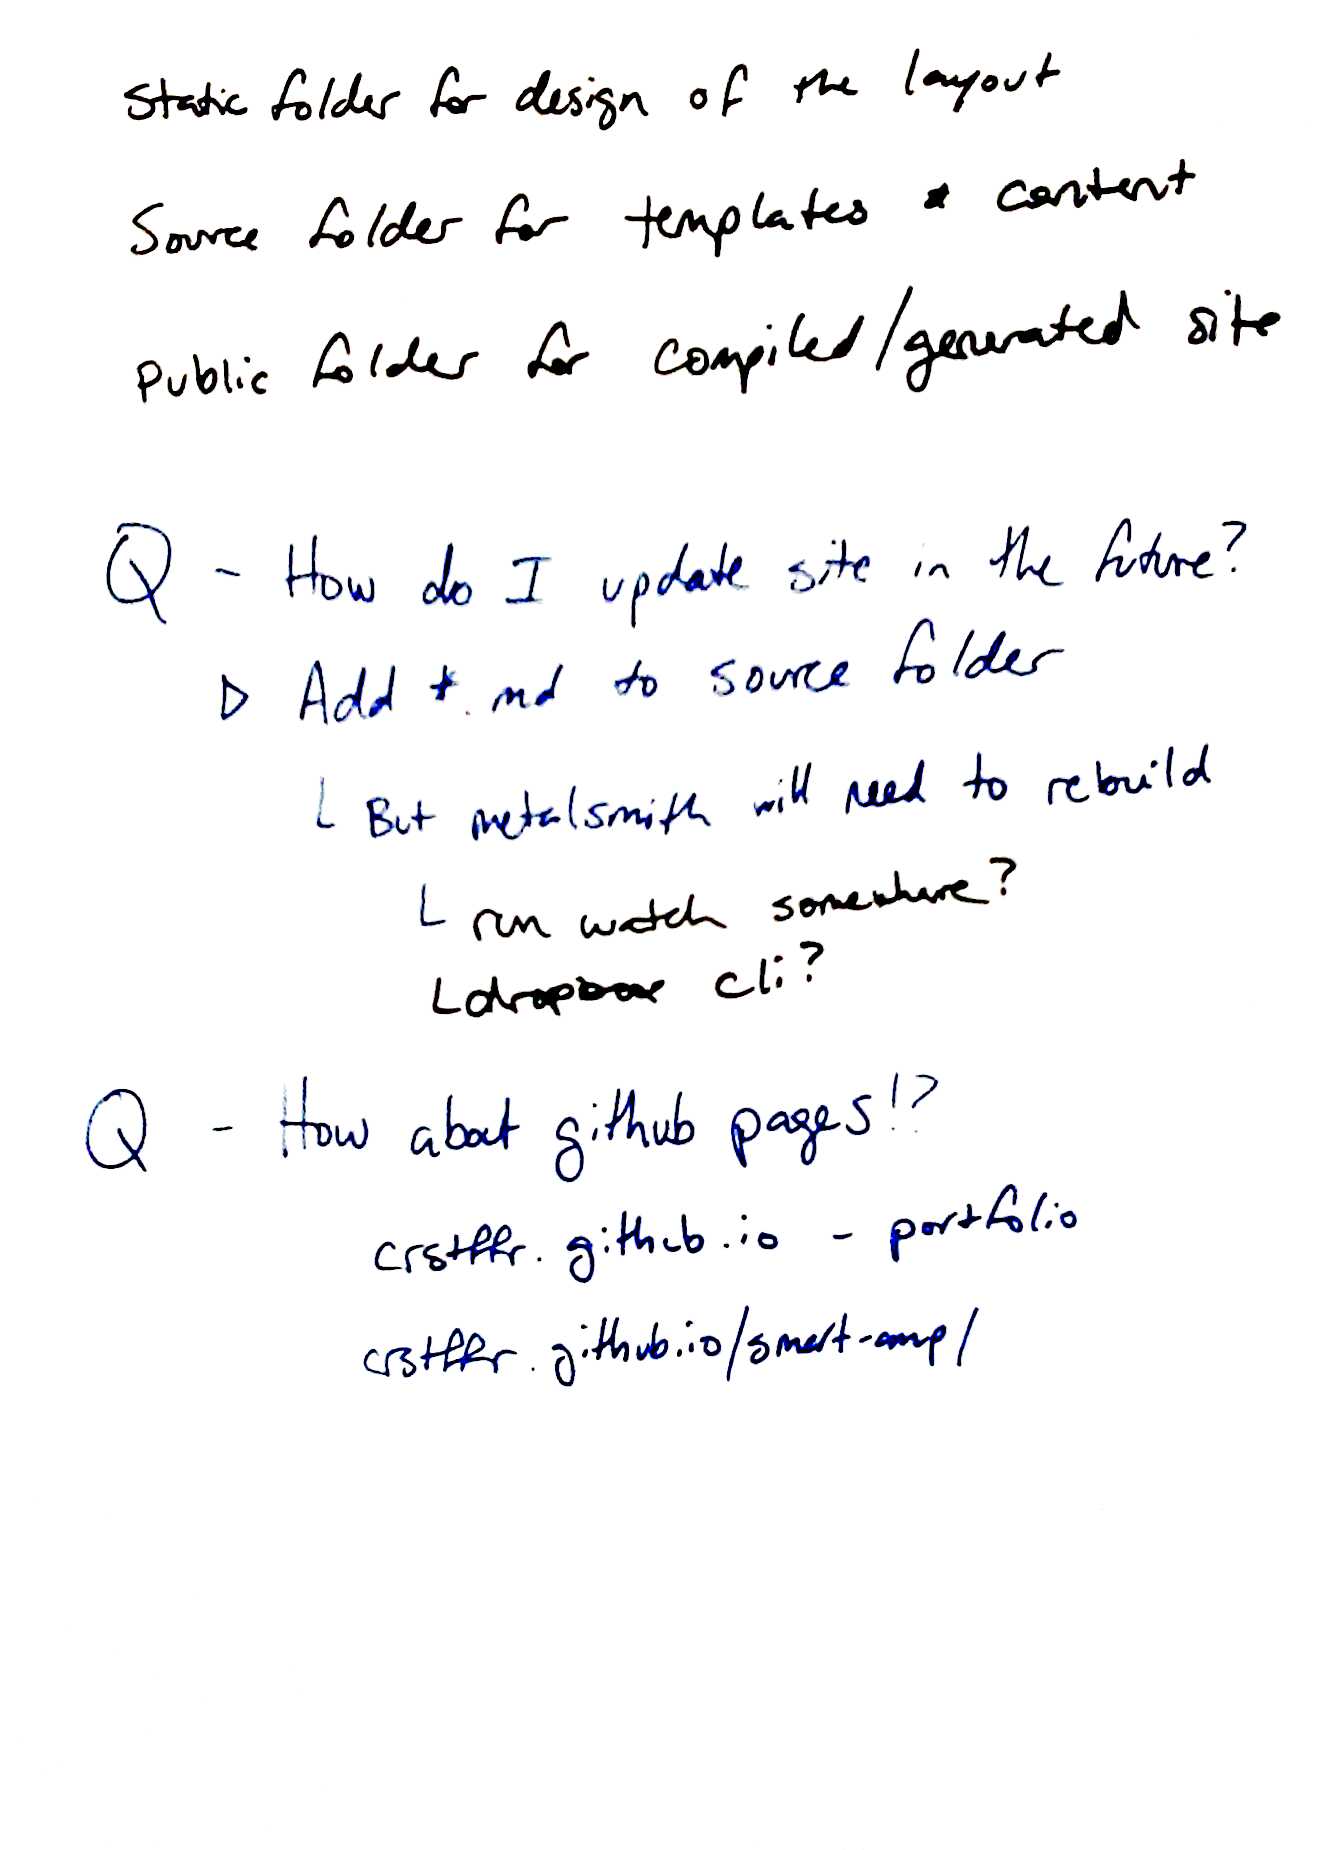 Static folder for design of the layout
Source folder for templates * content
Public folder for compiled/generated site
Q - How do I update site in the future?
▷ Add *.md to source folder
└ But metalsmith will need to rebuild
└ run watch somewhere?
└ dropbox cli?
Q - How about github pages!?
crstffr.github.io - portfolio
crstffr.github.io/smart-amp/